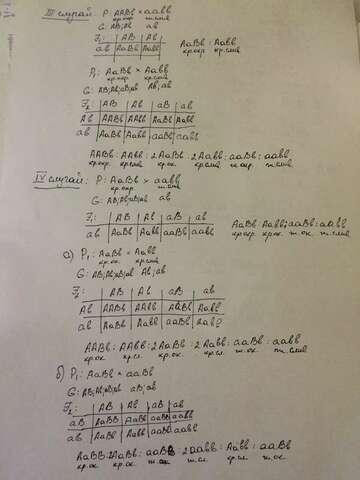 III случай: P: AABb × aabb
кр.окр. ж.слив
G: AB; Ab ab
F₁: | AB | Ab
ab | AaBb | Aabb AaBb : Aabb
кр.окр. кр.слив
P₁: AaBb × Aabb
кр.окр кр.слив
G: AB; Ab; aB; ab Ab; ab
F₂ | AB | Ab | aB | ab
Ab | AABb | AAbb | AaBb | Aabb
ab | AaBb | Aabb | aaBb | aabb
AABb : AAbb : 2AaBb : 2Aabb : aaBb : aabb
кр.окр кр.слив кр.ок. кр.слив ж.окр. ж.слив
IV случай: P: AaBb × aabb
кр.окр. ж.слив
G: AB; Ab; aB; ab ab
F₁ | AB | Ab | aB | ab
ab | AaBb | Aabb | aaBb | aabb AaBb : Aabb : aaBb : aabb
а) P₁: AaBb × Aabb
кр.ок. кр.слив
G: AB; Ab; aB; ab Ab; ab
F₂ | AB | Ab | aB | ab
Ab | AABb | AAbb | AaBb
ab | AaBb | Aabb | aaBb
AABb : AAbb : 2AaBb : 2Aabb : aaBb : aabb
кр.ок. кр.сл. кр.ок. кр.сл. ж.ок. ж.слив
б) P₁: AaBb × aaBb
G: AB; Ab; aB; ab aB; ab
F₂: | AB | Ab | aB | ab
aB | AaBB | AaBb | aaBB | aaBb
ab | AaBb | Aabb | aaBb | aabb
AaBB : 2AaBb : aaBB : 2aaBb : Aabb :
кр.ок кр.ок. ж.ок кр.сл ж.ок